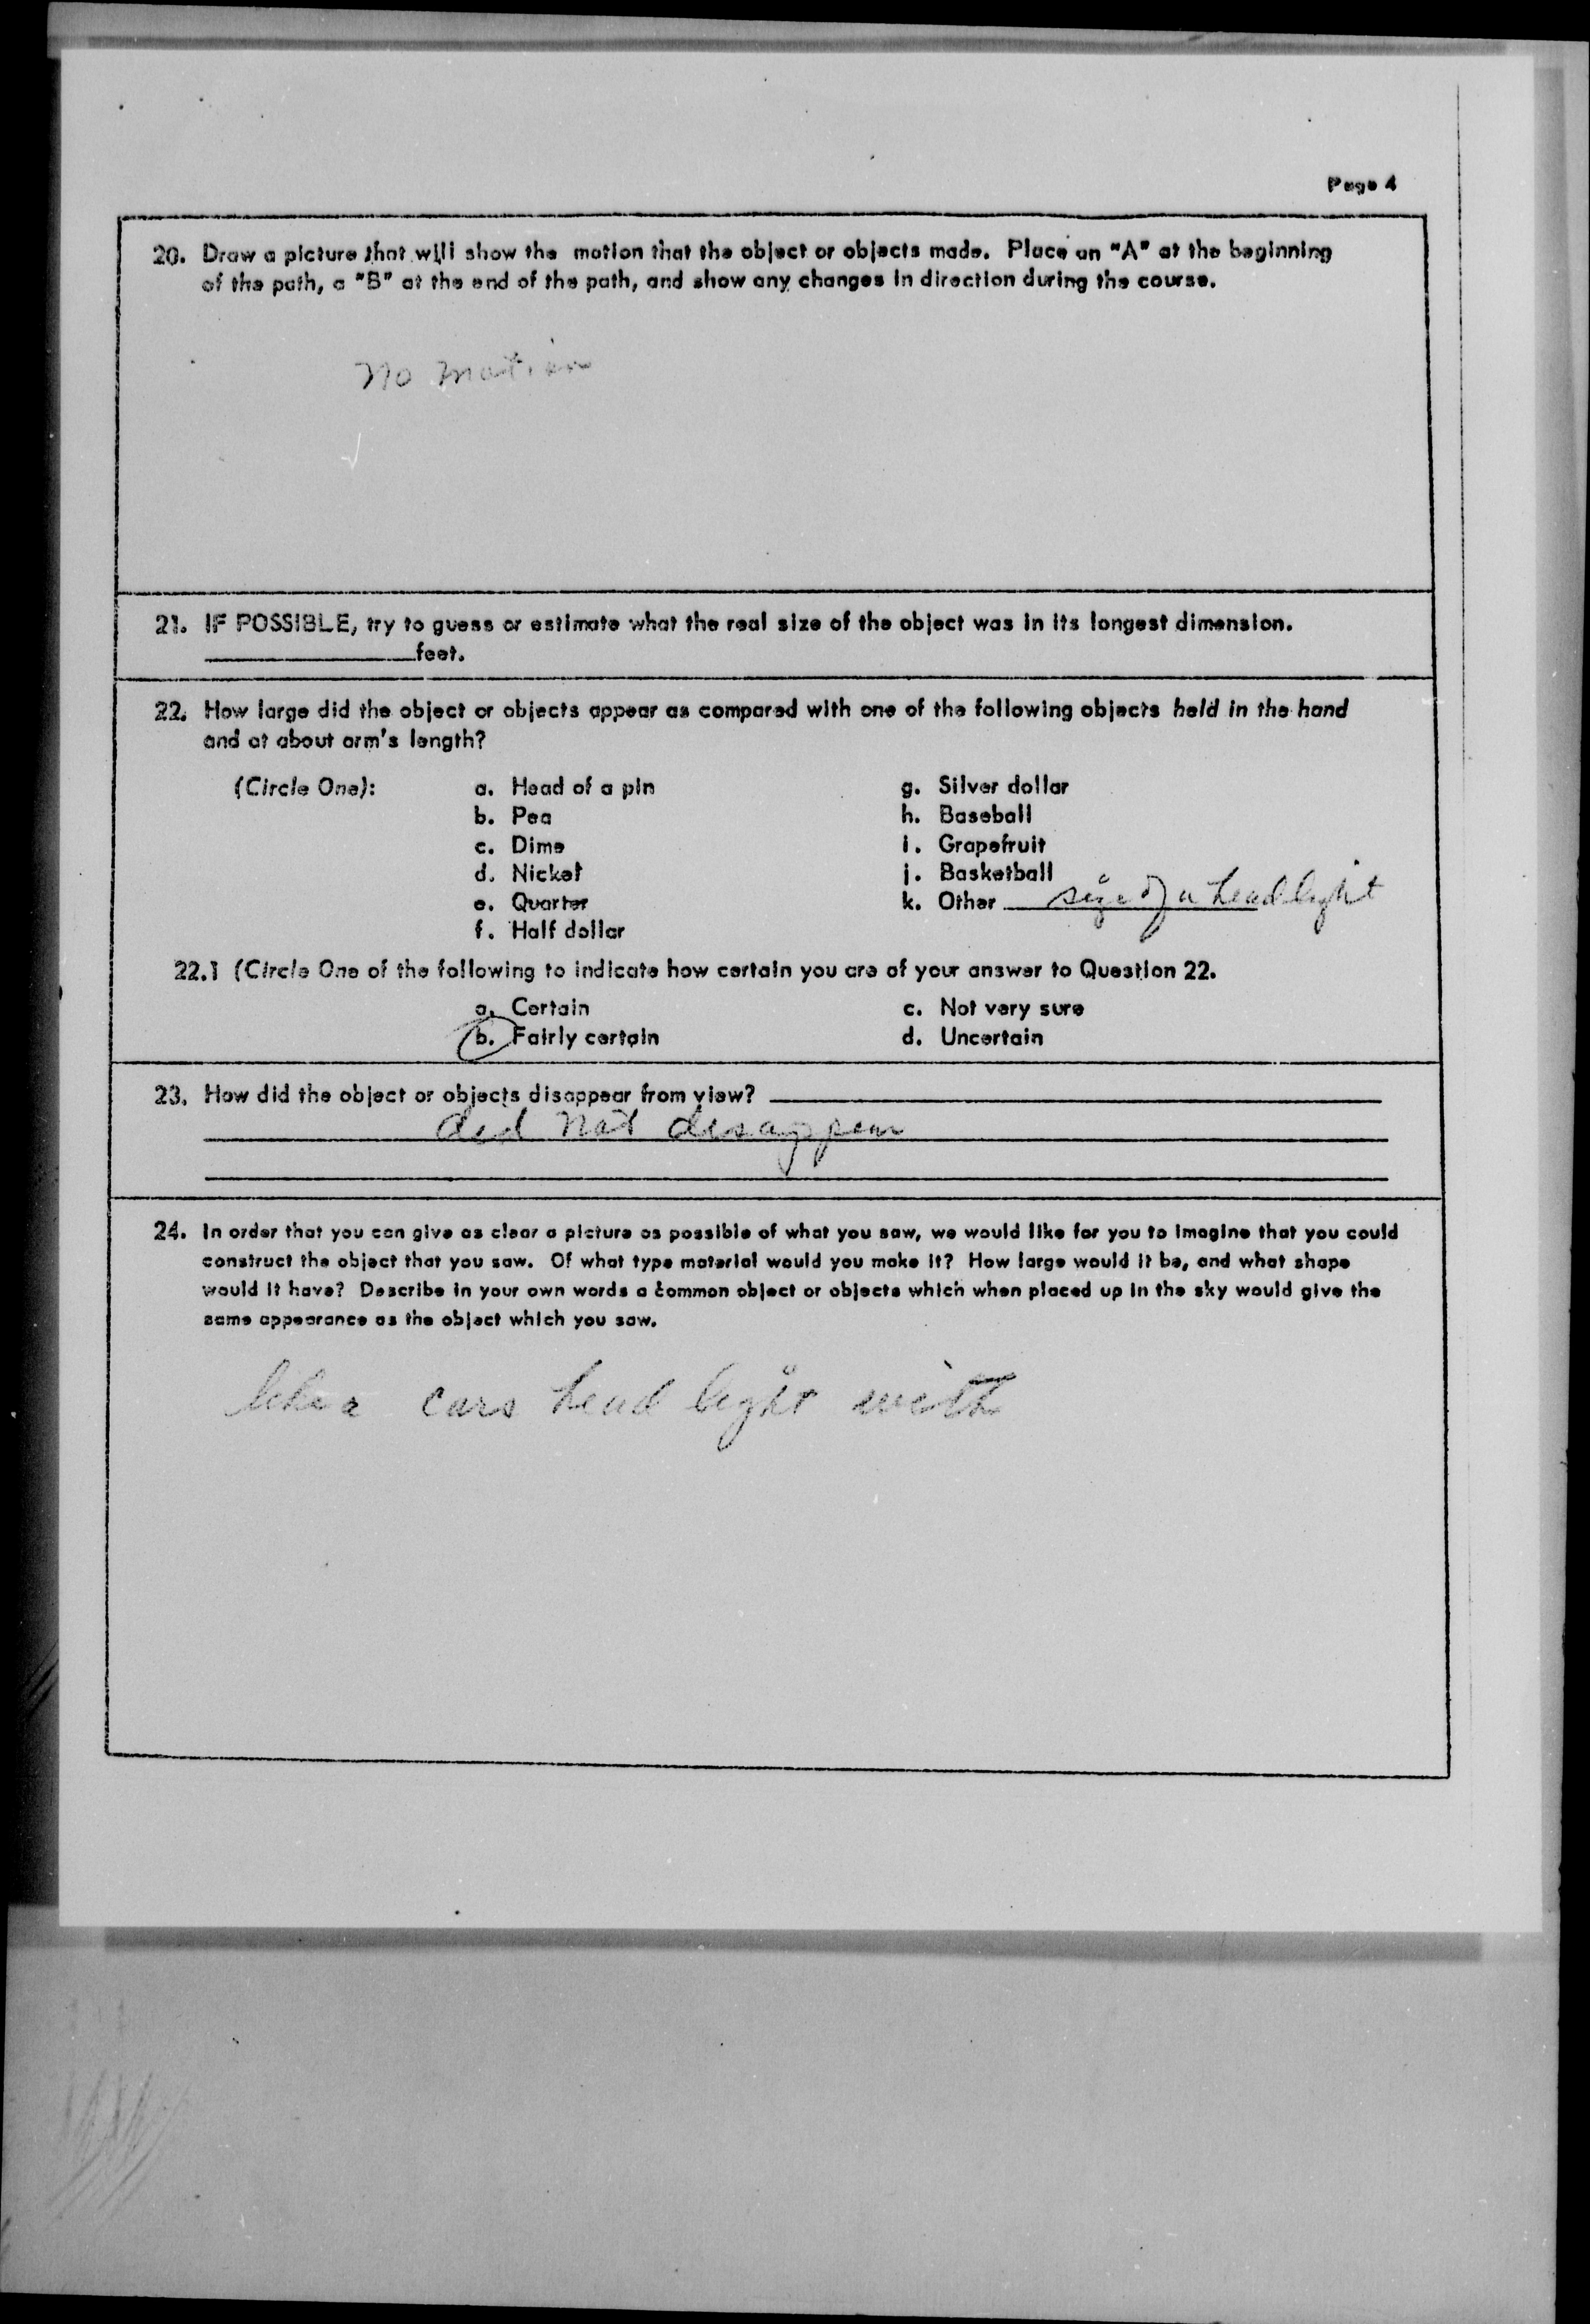 Page 4
20. Draw a picture that will show the motion that the object or objects made. Place an "A" at the beginning
of the path, a "B" at the end of the path, and show any changes in direction during the course.
No motion
21. IF POSSIBLE, try to guess or estimate what the real size of the object was in its longest dimension.
feet.
22. How large did the object or objects appear as compared with one of the following objects held in the hand
and at about arm's length?
(Circle One):
a. Head of a pin
b. Pea
c. Dime
d. Nickel
e. Quarter
f. Half dollar
g. Silver dollar
h. Baseball
i. Grapefruit
j. Basketball
k. Other size of a head light
22.1 (Circle One of the following to indicate how certain you are of your answer to Question 22.
a. Certain
b. Fairly certain
c. Not very sure
d. Uncertain
23. How did the object or objects disappear from view?
did not disappear
24. In order that you can give as clear a picture as possible of what you saw, we would like for you to imagine that you could
construct the object that you saw. Of what type material would you make it? How large would it be, and what shape
would it have? Describe in your own words a common object or objects which when placed up in the sky would give the
same appearance as the object which you saw.
like a cars head light with